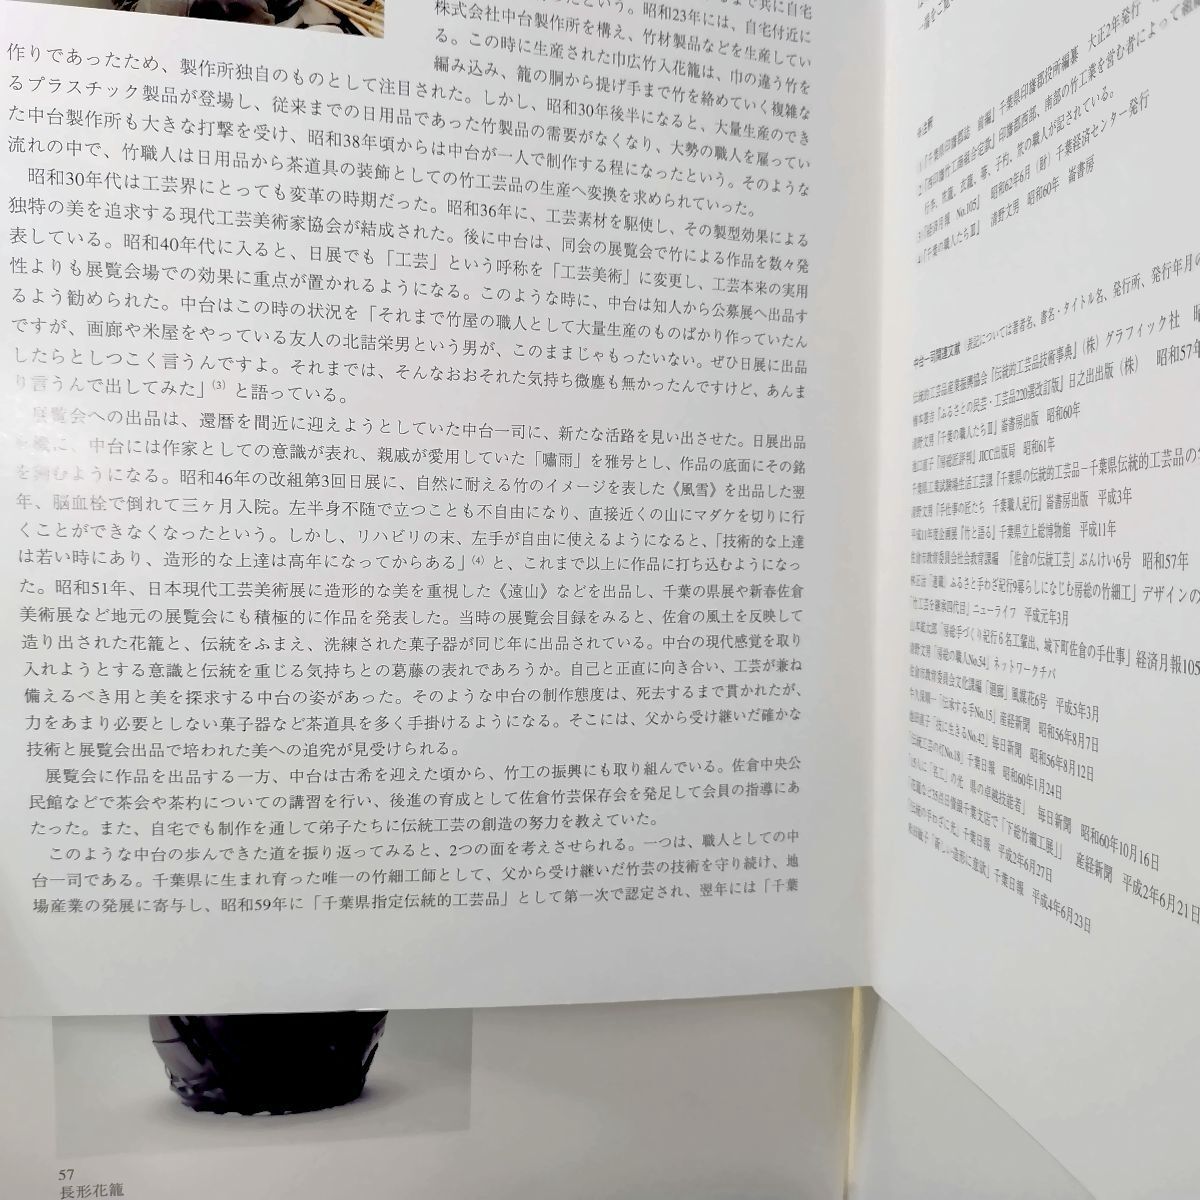 まで共に自宅
たという。昭和23年には、自宅付近に
株式会社中台製作所を構え、竹材製品などを生産してい
る。この時に生産された巾広竹入花籠は、巾の違う竹を
編み込み、籠の胴から提げ手まで竹を絡めていく複雑な
作りであったため、製作所独自のものとして注目された。しかし、昭和30年後半になると、大量生産のでき
るプラスチック製品が登場し、従来までの日用品であった竹製品の需要がなくなり、大勢の職人を雇ってい
た中台製作所も大きな打撃を受け、昭和38年頃からは中台が一人で制作する程になったという。そのような
流れの中で、竹職人は日用品から茶道具の装飾としての竹工芸品の生産へ変換を求められていった。
昭和30年代は工芸界にとっても変革の時期だった。昭和36年に、工芸素材を駆使し、その製型効果による
独特の美を追求する現代工芸美術家協会が結成された。後に中台は、同会の展覧会で竹による作品を数々発
表している。昭和40年代に入ると、日展でも「工芸」という呼称を「工芸美術」に変更し、工芸本来の実用
性よりも展覧会場での効果に重点が置かれるようになる。このような時に、中台は知人から公募展へ出品す
るよう勧められた。中台はこの時の状況を「それまで竹屋の職人として大量生産のものばかり作っていたん
ですが、画廊や米屋をやっている友人の北詰栄男という男が、このままじゃもったいない。ぜひ日展に出品
したらとしつこく言うんですよ。それまでは、そんなおおそれた気持ち微塵も無かったんですけど、あんま
り言うんで出してみた」(3) と語っている。
展覧会への出品は、還暦を間近に迎えようとしていた中台一司に、新たな活路を見い出させた。日展出品
を機に、中台には作家としての意識が表れ、親戚が愛用していた「嘯雨」を雅号とし、作品の底面にその銘
を刻むようになる。昭和46年の改組第3回日展に、自然に耐える竹のイメージを表した《風雪》を出品した翌
年、脳血栓で倒れて三ヶ月入院。左半身不随で立つことも不自由になり、直接近くの山にマダケを切りに行
くことができなくなったという。しかし、リハビリの末、左手が自由に使えるようになると、「技術的な上達
は若い時にあり、造形的な上達は高年になってからある」(4) と、これまで以上に作品に打ち込むようになっ
た。昭和51年、日本現代工芸美術展に造形的な美を重視した《遠山》などを出品し、千葉の県展や新春佐倉
美術展など地元の展覧会にも積極的に作品を発表した。当時の展覧会目録をみると、佐倉の風土を反映して
造り出された花籠と、伝統をふまえ、洗練された菓子器が同じ年に出品されている。中台の現代感覚を取り
入れようとする意識と伝統を重じる気持ちとの葛藤の表れであろうか。自己と正直に向き合い、工芸が兼ね
備えるべき用と美を探求する中台の姿があった。そのような中台の制作態度は、死去するまで貫かれたが、
力をあまり必要としない菓子器など茶道具を多く手掛けるようになる。そこには、父から受け継いだ確かな
技術と展覧会出品で培われた美への追究が見受けられる。
展覧会に作品を出品する一方、中台は古希を迎えた頃から、竹工の振興にも取り組んでいる。佐倉中央公
民館などで茶会や茶杓についての講習を行い、後進の育成として佐倉竹芸保存会を発足して会員の指導にあ
たった。また、自宅でも制作を通して弟子たちに伝統工芸の創造の努力を教えていた。
このような中台の歩んできた道を振り返ってみると、2つの面を考えさせられる。一つは、職人としての中
台一司である。千葉県に生まれ育った唯一の竹細工師として、父から受け継いだ竹芸の技術を守り続け、地
場産業の発展に寄与し、昭和59年に「千葉県指定伝統的工芸品」として第一次で認定され、翌年には「千葉
57
長形花籠
※注釈
1)『千葉県印旛郡誌 前編』千葉県印旛郡役所編纂 大正2年発行
2)『西印旛竹工商組合定款』印旛郡西部、南部の竹工業を営む者によって組
行李、箕籠、衣籠、箒、子杓、笊の職人が記されている。
3)『経済月報 No.105』 昭和62年6月（財）千葉経済センター発行
4)『千葉の職人たちⅡ』 清野文男 昭和60年 崙書房
中台一司関連文献（表記については著者名、書名・タイトル名、発行所、発行年月の
伝統的工芸品産業振興協会『伝統的工芸品技術事典』（株）グラフィック社 昭
『ふるさとの民芸・工芸品220選改訂版』日之出出版（株） 昭和57年
清野文男『千葉の職人たちⅡ』崙書房出版 昭和60年
『房総匠評判』JICC出版局 昭和61年
千葉県工業試験場生活工芸課『千葉県の伝統的工芸品－千葉県伝統的工芸品の
清野文男『手仕事の匠たち 千葉職人紀行』崙書房出版 平成3年
平成11年度企画展『竹と語る』千葉県立上総博物館 平成11年
佐倉市教育委員会社会教育課編 『佐倉の伝統工芸』ぶんけい6号 昭和57年
「連載」ふるさと手わざ紀行9暮らしになじむ房総の竹細工」デザインの
「竹工芸を継承四代目」ニューライフ 平成元年3月
「房総手づくり紀行6 名工輩出、城下町佐倉の手仕事」経済月報105
清野文男「房総の職人No.54」ネットワークチバ
佐倉市教育委員会文化課編「廻廊」風媒花6号 平成5年3月
「伝承する手No.15」産経新聞 昭和56年8月7日
「技に生きるNo.42」毎日新聞 昭和56年8月12日
「伝統工芸の灯No.18」千葉日報 昭和60年1月24日
「名工」の光 県の卓越技能者」 毎日新聞 昭和60年10月16日
千葉支店で「下総竹細工展」」 産経新聞 平成2年6月21日
「伝統の手わざに光」千葉日報 平成2年6月27日
「新しい造形に意欲」千葉日報 平成4年6月23日